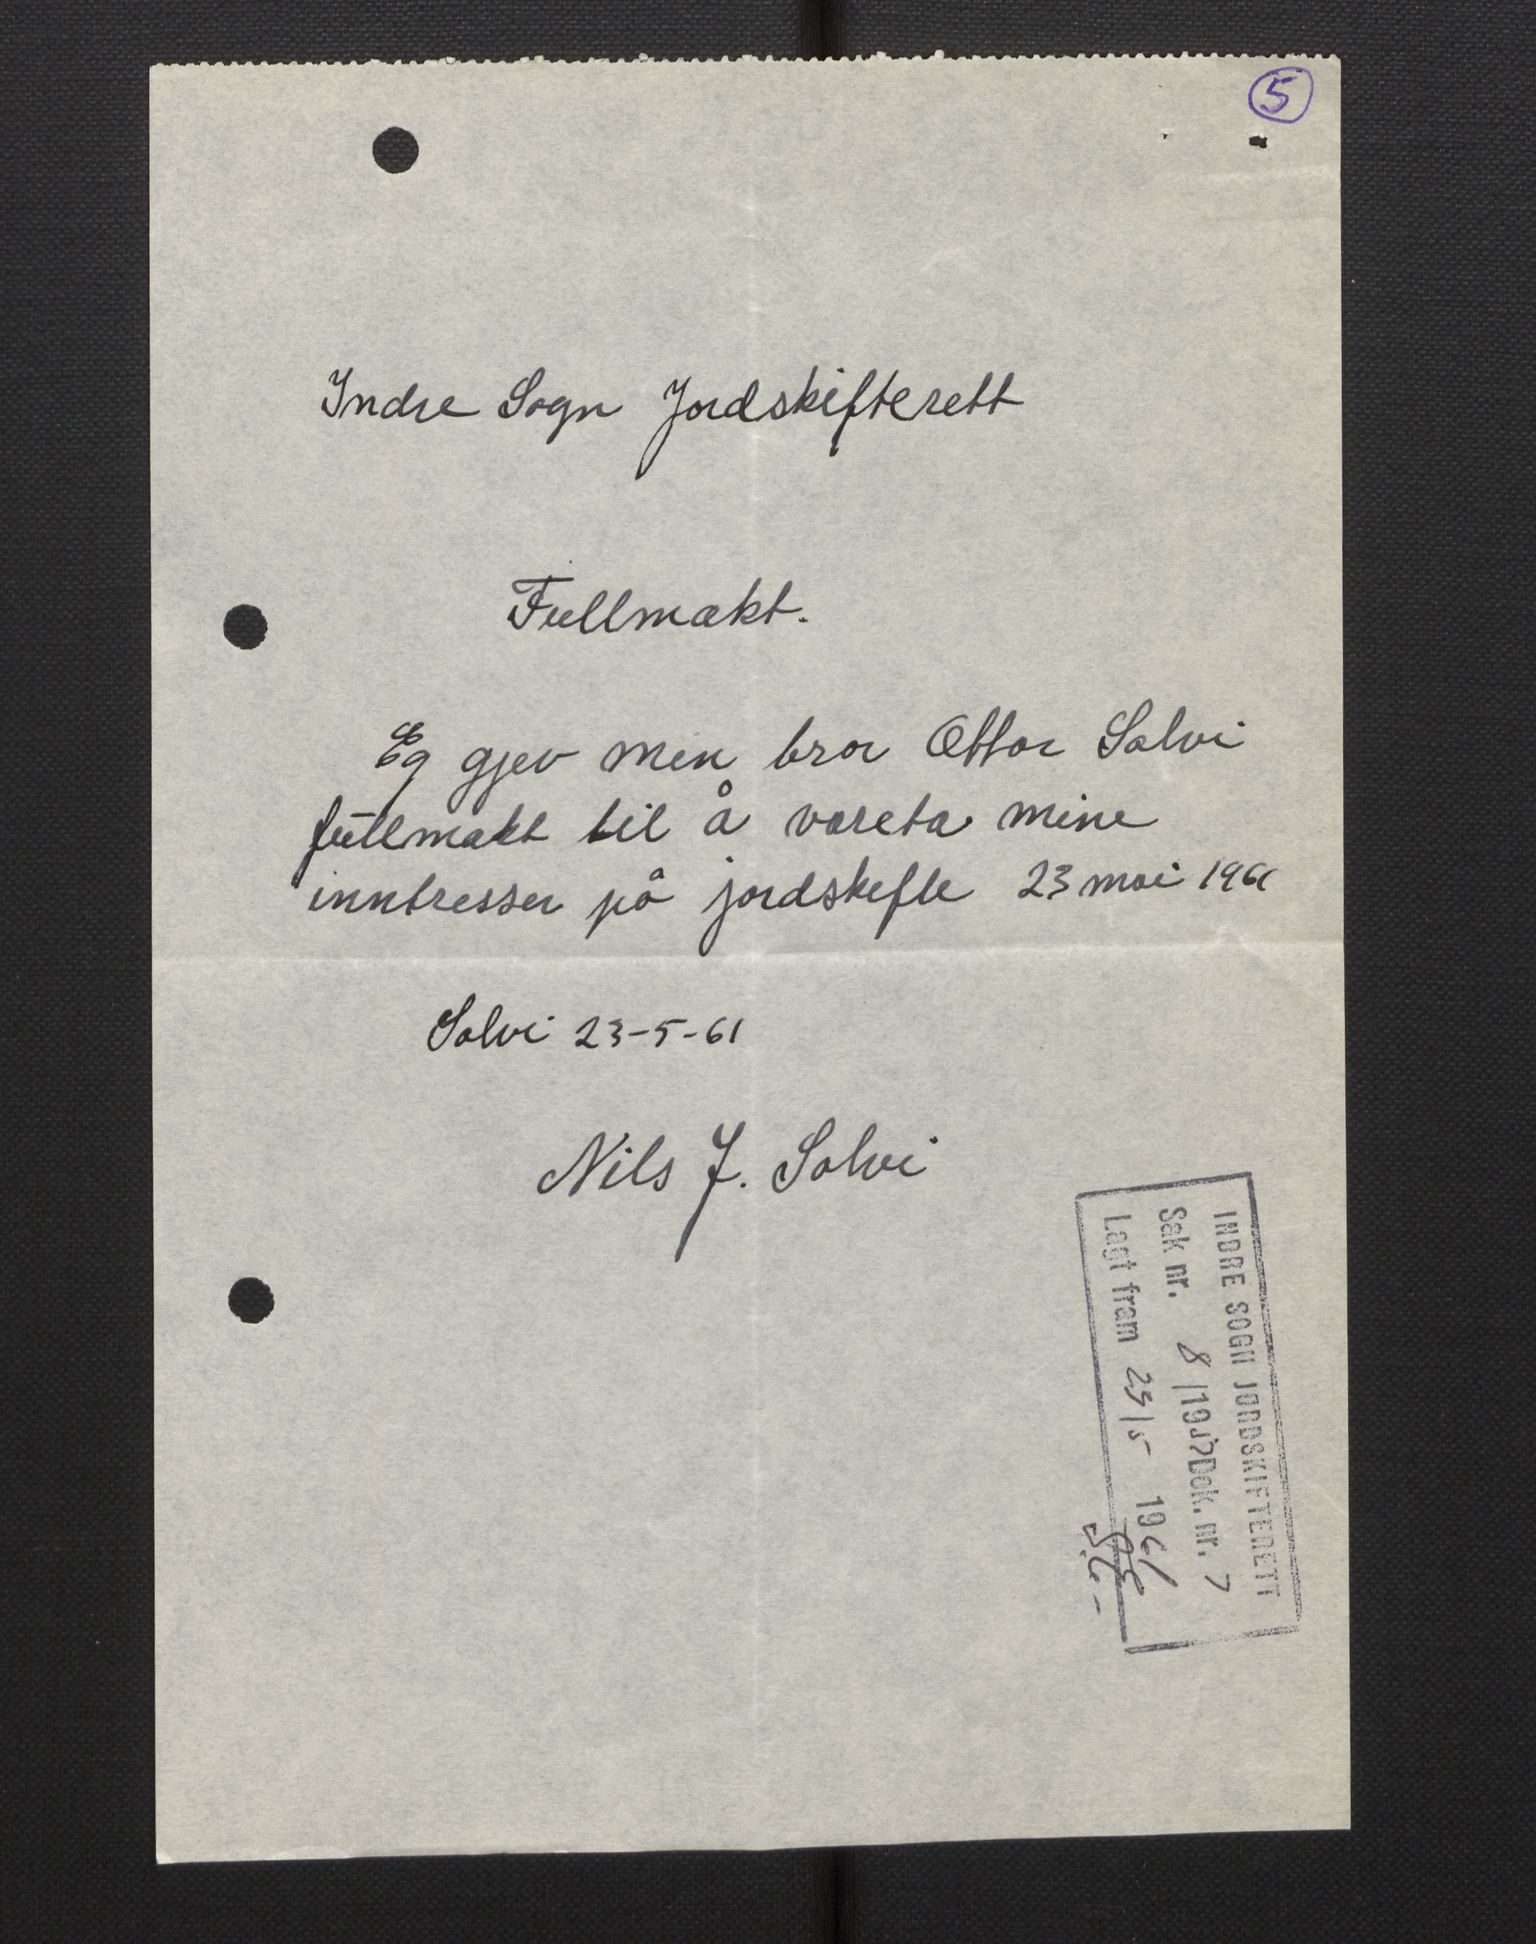 5
Indre Sogn Jordskifterett
Fullmakt.
Eg gjev min bror Ottar Solvi
fullmakt til å vareta mine
inntresser på jordskifte 23 mai 1961
Solvi 23-5-61
Nils J. Solvi
INDRE SOGN JORDSKIFTERETT
Sak nr. 8/19 Dok. nr. 7
Lagt fram 23/5 1961